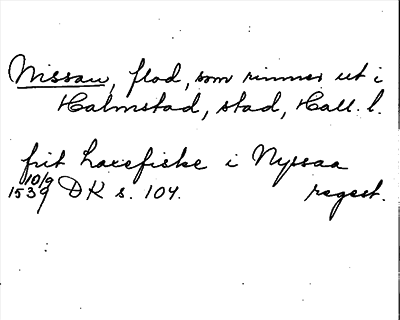 Nissan, flod, som rinner ut i
Halmstad, stad, Hall. l.
frit laxefiske i Nyssaa
10/9
1539 DK s. 104. regest.